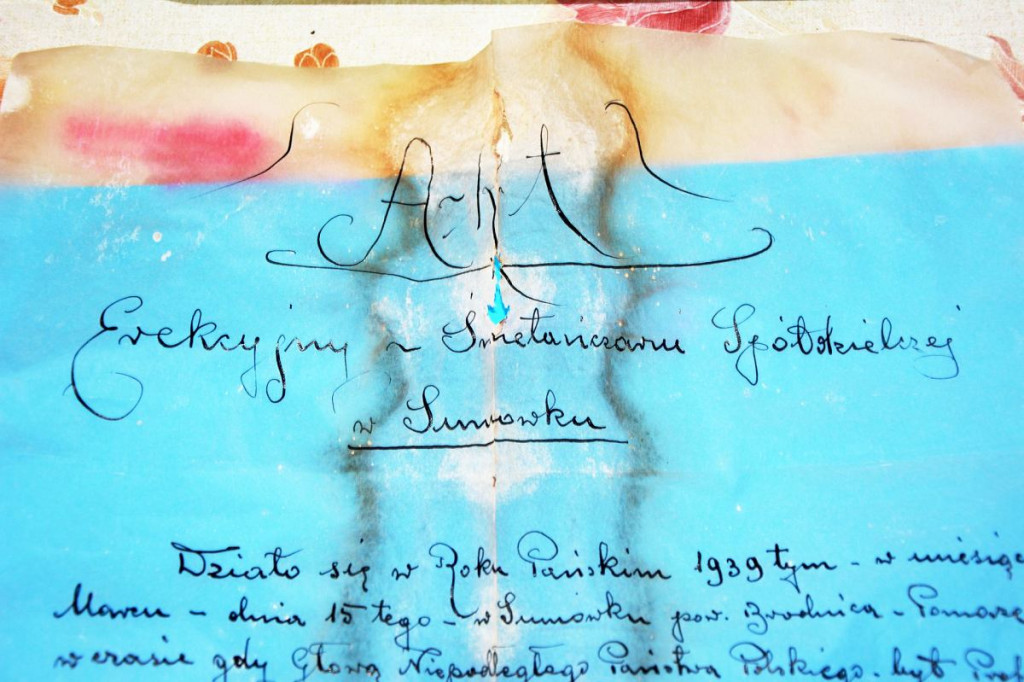 Akt
Erekcyjny ~ Śmietańczarni Spółdzielczej
w Sumówku
Działo się w Roku Pańskim 1939 tym - w miesiąc
Marcu - dnia 15 tego - w Sumówku pow. Brodnica - Pomorze
w czasie gdy Głową Niepodległego Państwa Polskiego. był